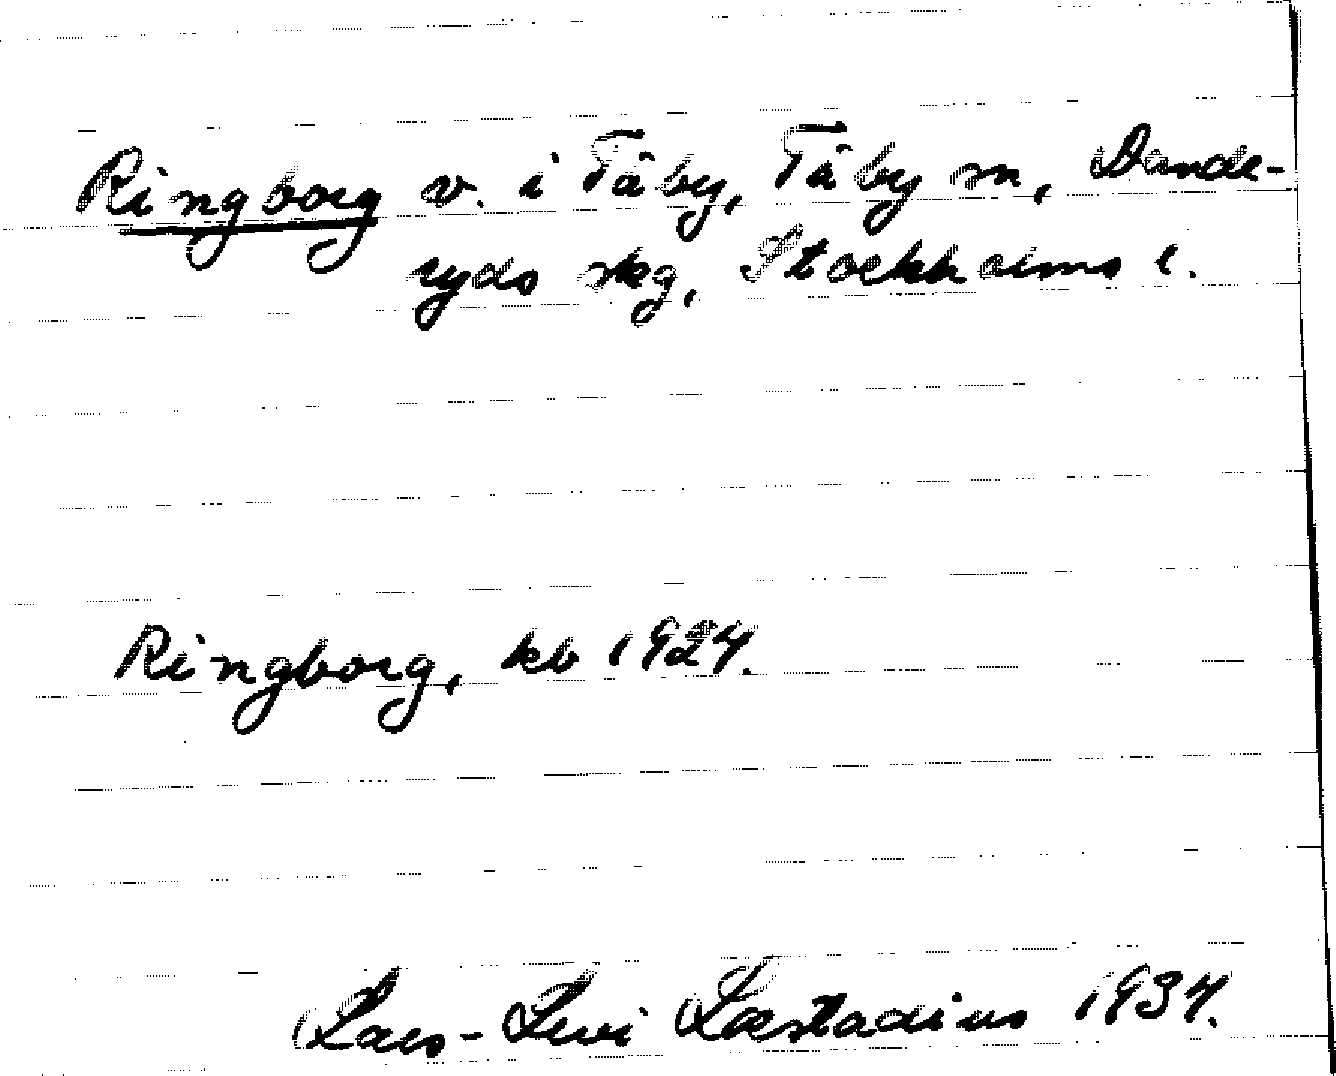 Ringborg v. i Täby, Täby sn, Dande-
ryds skg, Stockholms l.
Ringborg, kb 1924.
Lars-Levi Læstadius 1934.